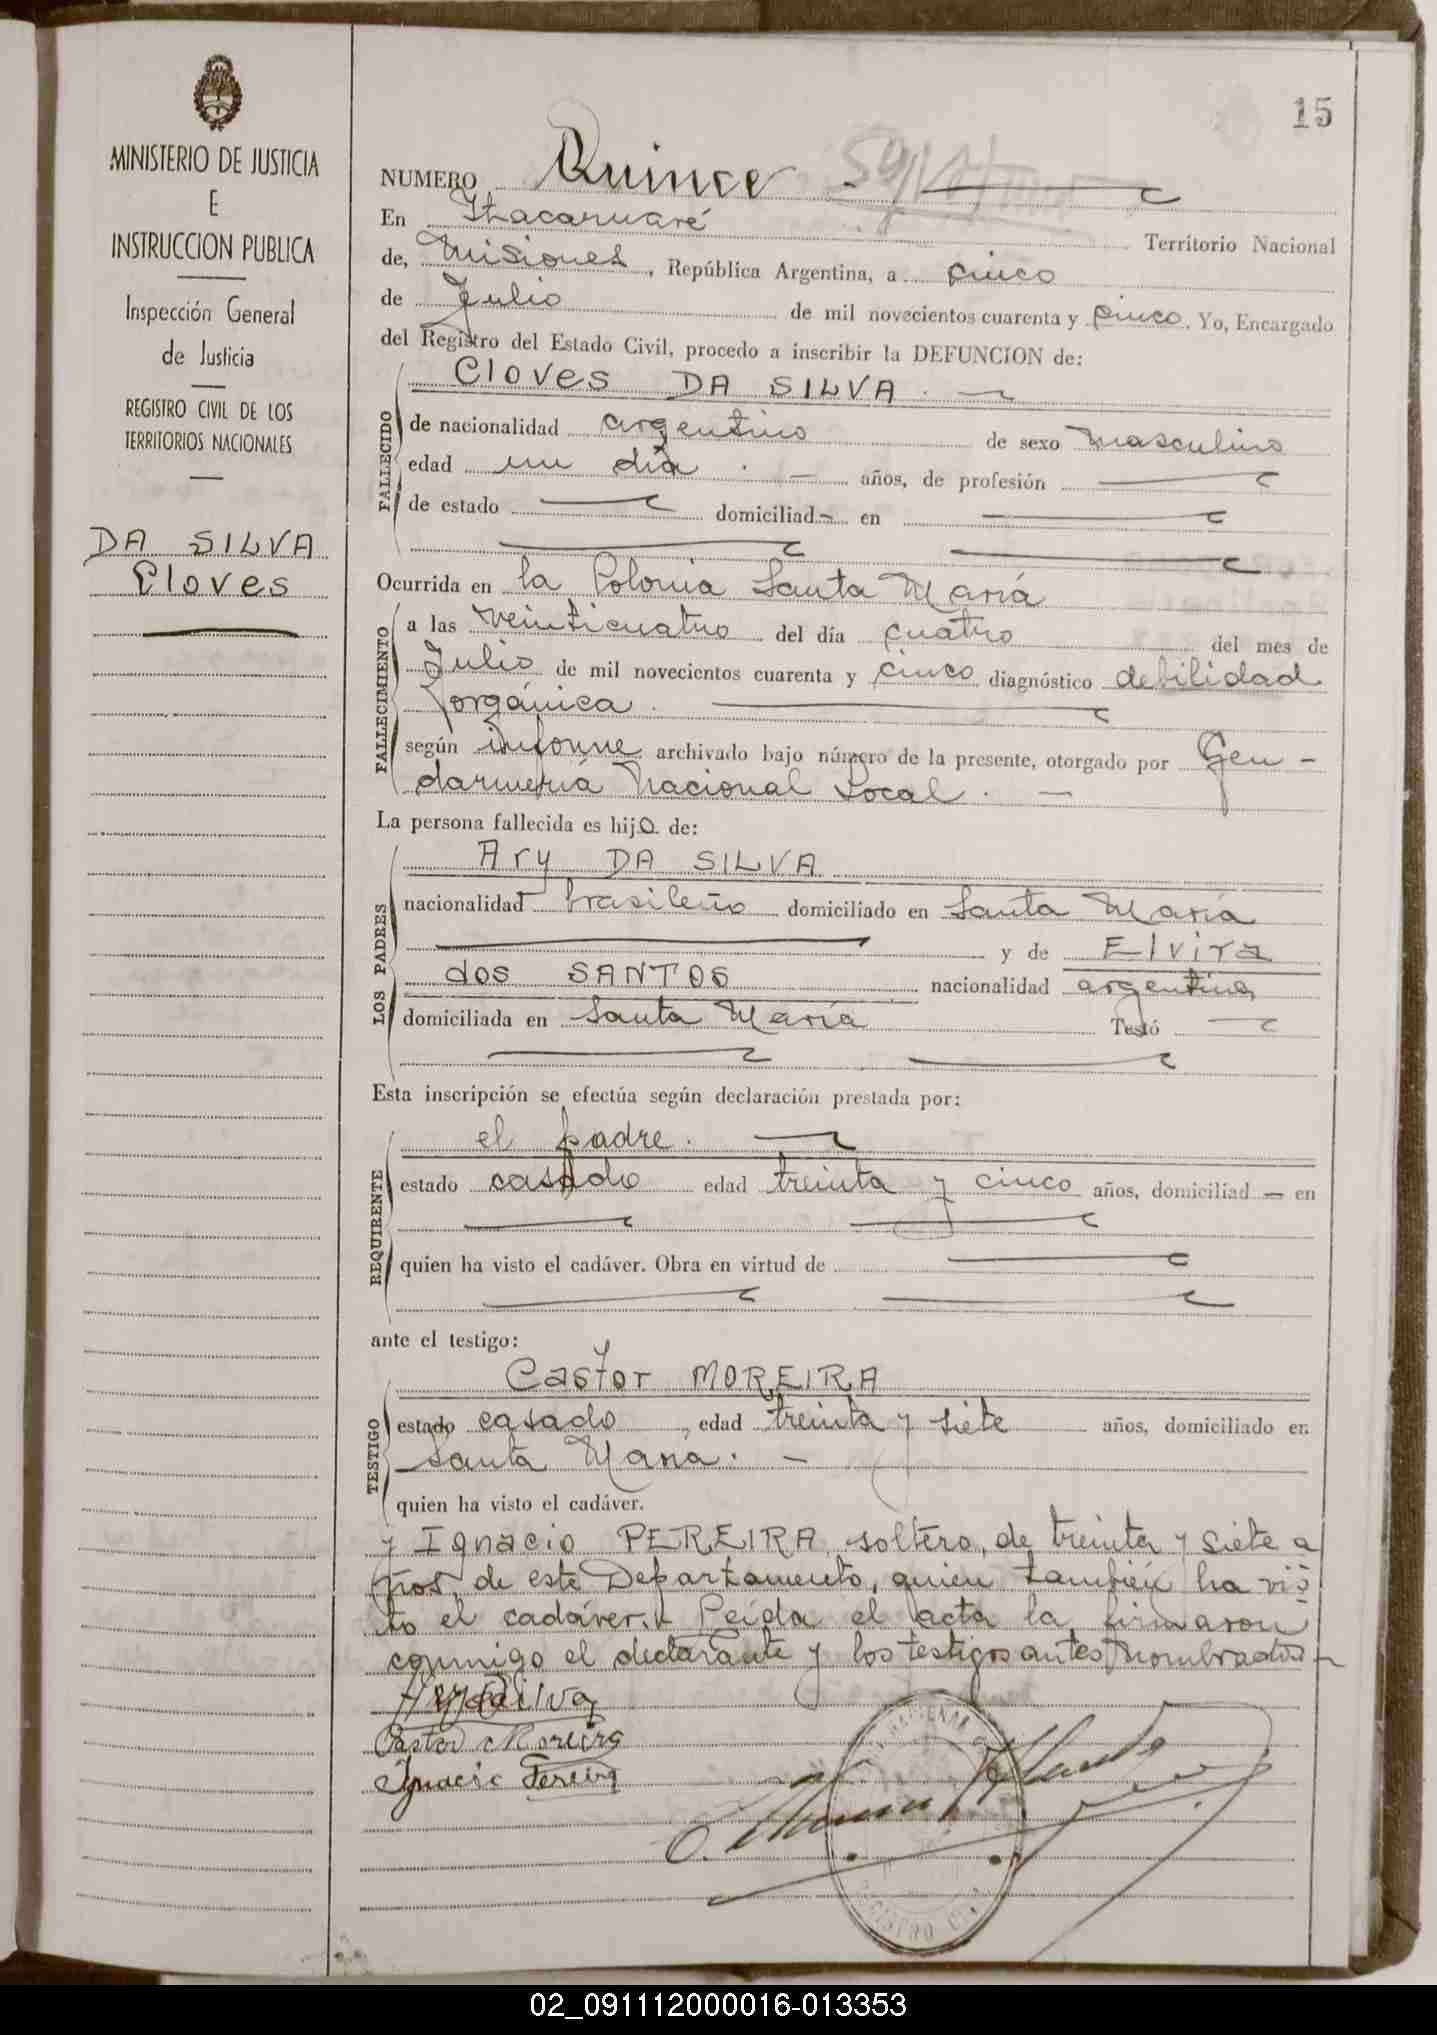 15
MINISTERIO DE JUSTICIA
E
INSTRUCCION PUBLICA
Inspección General
de Justicia
REGISTRO CIVIL DE LOS
TERRITORIOS NACIONALES
DA SILVA
Cloves
NUMERO Quince
En Itacaruaré Territorio Nacional
de, Misiones, República Argentina, a cinco
de Julio de mil novecientos cuarenta y cinco. Yo, Encargado
del Registro del Estado Civil, procedo a inscribir la DEFUNCION de:
FALLECIDO
Cloves DA SILVA. —
de nacionalidad argentino de sexo masculino
edad un día. — años, de profesión —
de estado — domiciliad— en —
Ocurrida en la Colonia Santa María
FALLECIMIENTO
a las veinticuatro del día cuatro del mes de
Julio de mil novecientos cuarenta y cinco diagnóstico debilidad
orgánica. —
según informe archivado bajo número de la presente, otorgado por Gen-
darmería Nacional Local. —
La persona fallecida es hijo de:
LOS PADRES
Ary DA SILVA
nacionalidad brasileño domiciliado en Santa María
— y de Elvira
dos SANTOS nacionalidad argentina
domiciliada en Santa María Testó —
Esta inscripción se efectúa según declaración prestada por:
REQUIRENTE
el padre. —
estado casado edad treinta y cinco años, domiciliad — en
quien ha visto el cadáver. Obra en virtud de —
ante el testigo:
TESTIGO
Castor MOREIRA
estado casado, edad treinta y siete años, domiciliado en
Santa María. —
quien ha visto el cadáver.
y Ignacio PEREIRA, soltero, de treinta y siete a
ños, de este Departamento, quien también ha vis
to el cadáver. Leída el acta la firmaron
conmigo el declarante y los testigos antes nombrados
Ary da Silva
Castor Moreira
Ignacio Pereira
NACIONAL
REGISTRO CIVIL
02_091112000016-013353